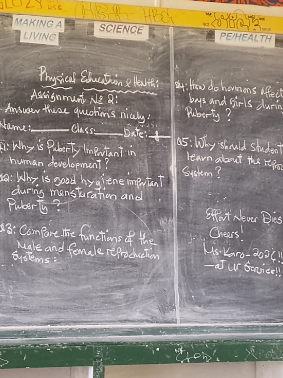 MAKING A
LIVING
SCIENCE
PE/HEALTH
Physical Education & Health:
Assignment No 2:
Answer these questions nicely:
Name: Class: Date:
Q1: Why is Puberty Important in
human development?
Q2: Why is good hygiene important
during mensturation and
Puberty?
Q3: Compare the functions of the
Male and female reproduction
Systems:
Q4: How do hormons affect
boys and girls durin
Puberty?
Q5: Why should Student
learn about the repro
System?
Effort Never Dies
Cheers!
Ms. Karo
at ur Service!!